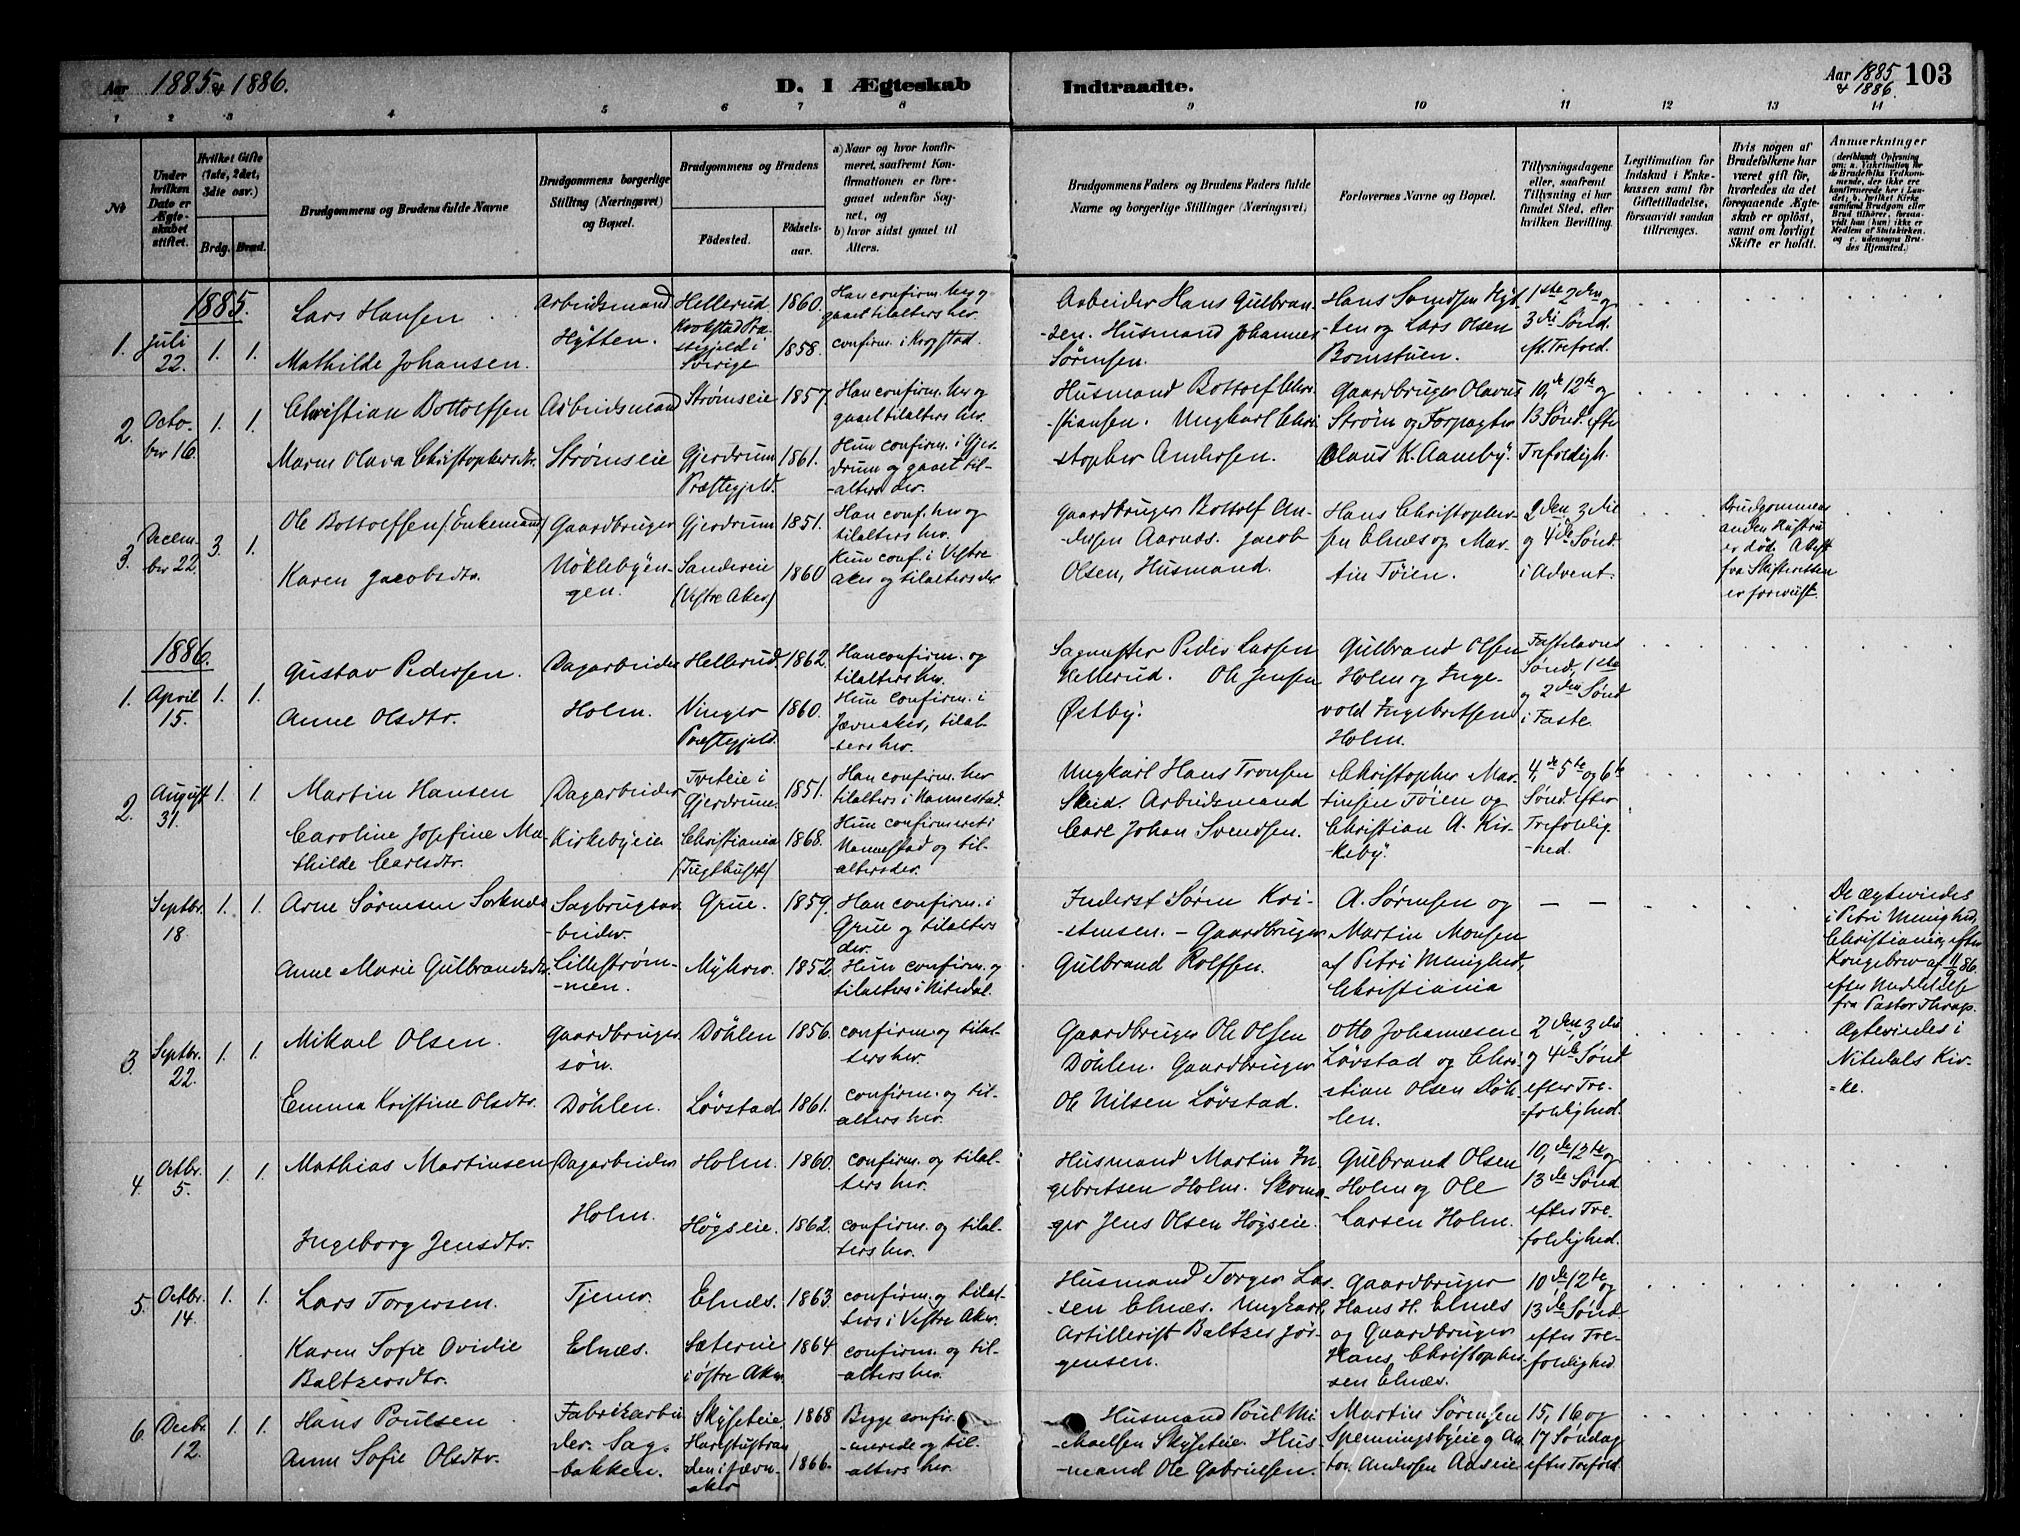 Aar 1885 & 1886.
D. 1 Ægteskab
Indtraadte.
Aar 1885 & 1886.
103
1 2 3 4 5 6 7 8 9 10 11 12 13 14
No
Under hvilken Dato er Ægteskabet stiftet.
Hvilket Gifte (1ste, 2det, 3die osv.)
Brdg. Brud.
Brudgommens og Brudens fulde Navne
Brudgommens borgerlige Stilling (Næringsvei) og Bopæl.
Brudgommens og Brudens
Födested.
Födsels-aar.
a) Naar og hvor konfirmeret, saafremt Konfirmationen er foregaaet udenfor Sognet, og
b) hvor sidst gaaet til Alters.
Brudgommens Faders og Brudens Faders fulde Navne og borgerlige Stillinger (Næringsvei)
Forlovernes Navne og Bopæl.
Tillysningsdagene eller, saafremt Tillysning ei har fundet Sted, efter hvilken Bevilling.
Legitimation for Indskud i Enkekassen samt for Giftetilladelse, forsaavidt saadan tiltrænges.
Hvis nogen af Brudefolkene har været gift før, hvorledes da det foregaaende Ægteskab er oplöst, samt om lovligt Skifte er holdt.
Anmærkninger
1885.
1. Juli 22. 1. 1.
Lars Hansen
Mathilde Johansen.
Arbeidsmand
Hytten.
Hellerud. 1860.
Krokstad Præstegjeld i Sverige 1858.
Han confirm. her og gaaet tilalters her.
confirm. i Krogstad.
Arbeider Hans Gulbransen. Husmand Johannes Sörensen.
Hans Svendsen Hytten og Lars Olsen Bomstuen.
1ste 2den og 3die Sönd. eft. Trefold.
2. October 16. 1. 1.
Christian Bottolfsen
Maren Olava Christophersdtr.
Arbeidsmand
Strömseie
Strömseie 1857
Gjerdrum Præstegjeld. 1861.
Han confirm. her og gaaet tilalters her.
Hun confirm. i Gjerdrum og gaaet tilalters her.
Husmand Bottolf Christiansen. Ungkarl Christopher Andersen.
Gaardbruger Olavus Ström og Forpagter Claus K. Aamby.
10de, 12te og 13 Sönd. efter Trefoldigh.
3. December 22. 3. 1.
Ole Bottolfsen (Enkemand)
Karen Jacobsdtr.
Gaardbruger
Nöklebyengen.
Gjerdrum 1851.
Sandereie (Vestre Aker) 1860
Han conf. her og tilalters her.
Hun conf. i Vestre Aker og tilalters der
Gaardbruger Bottolf Andersen Aarnæs. Jacob Olsen, Husmand.
Hans Christophersen Elnæs og Martin Töien.
2den, 3die og 4de Sönd. i Advent.
Brudgommens anden Hustru er död. Attest fra Skifteretten er forevist.
1886.
1. April 15. 1. 1.
Gustav Pedersen.
Anne Olsdtr.
Dagarbeider
Holm.
Hellerud. 1862.
Vinger Præstegjeld. 1860.
Han confirm. og tilalters her.
Hun confirm. i Jævnaker, tilalters her.
Sagmester Peder Larsen Hellerud. Ole Jensen Östby.
Gulbrand Olsen Holm og Ingevold Ingebretsen Holm.
Fastelavns Sönd, 1ste og 2den Sönd i Faste.
2. August 31. 1. 1.
Martin Hansen
Caroline Josefine Mathilde Carlsdtr.
Dagarbeider
Kirkebyeie
Tveteie i Gjerdrum. 1851.
Christiania (Tugthuset) 1868.
Han confirm. her tilalters i Nannestad.
Hun confirmeret i Nannestad og tilalters der.
Ungkarl Hans Tronsen Skeid. Arbeidsmand Carl Johan Svendsen.
Christopher Martinsen Töien og Christian A. Kirkeby.
4de, 5te og 6te Sönd. efter Trefoldighed.
Septbr. 18. 1. 1.
Arne Sörensen Sorknæs
Anne Marie Gulbrandsdtr
Sagbrugsarbeider.
Lilleströmmen.
Grue. 1859.
Myhrer. 1852.
Han confirm. i Grue og tilalters der.
Hun confirm. og tilalters i Nitedal.
Inderst Sören Kristensen. – Gaardbruger Gulbrand Rolfsen.
A. Sörensen og Martin Monsen af Petri Menighed, Christiania
– –
De ægteviedes i Petri Menighed, Christiania, efter Kongebrev af 11/9 86. efter Meddelelse fra Pastor Thrap.
3. Septbr. 22. 1. 1.
Mikael Olsen.
Emma Kristine Olsdtr.
Gaardbrugersön.
Döhlen.
Döhlen 1856.
Lövstad. 1861.
confirm. og tilalters her.
confirm. og tilalters her.
Gaardbruger Ole Olsen Döhlen. Gaardbruger Ole Nilsen Lövstad.
Otto Johannesen Lövstad og Christian Olsen Döhlen.
2den, 3die og 4de Sönd efter Trefoldighed.
Ægteviedes i Nitedals Kirke.
4. Octbr. 5. 1. 1.
Mathias Martinsen
Ingeborg Jensdtr.
Dagarbeider
Holm.
Holm. 1860.
Högseie. 1862.
confirm. og tilalters her.
confirm. og tilalters her.
Husmand Martin Ingebretsen Holm. Skomager Jens Olsen Högseie.
Gulbrand Olsen Holm og Ole Larsen Holm.
10de, 12te og 13de Sönd efter Trefoldighed.
5. Octbr. 14. 1. 1.
Lars Torgersen.
Karen Sofie Ovidie Baltzersdtr.
Tjener
Elnæs.
Elnæs. 1863.
Sætereie i Östre Aker. 1864.
confirm. og tilalters i Vestre Aker.
confirm. og tilalters her.
Husmand Torger Larsen Elnæs. Ungkarl, Artillerist Baltzer Jörgensen.
Gaardbruger Hans H. Elnæs og Gaardbruger Hans Christophersen Elnæs.
10de, 12te og 13de Sönd efter Trefoldighed.
6. Decbr. 12. 1. 1.
Hans Poulsen
Anne Sofie Olsdtr.
Fabrikarbeider. Sagbakken.
Skyseteie 1868
1866.
Begge confirmerede og tilalters her.
Husmand Poul Mikaelsen Skyseteie. Husmand Ole Gabrielsen.
Martin Sörensen Spenningsbyeie og Anton Andersen Aaseie
15, 16 og 17 Söndag efter Trefold.